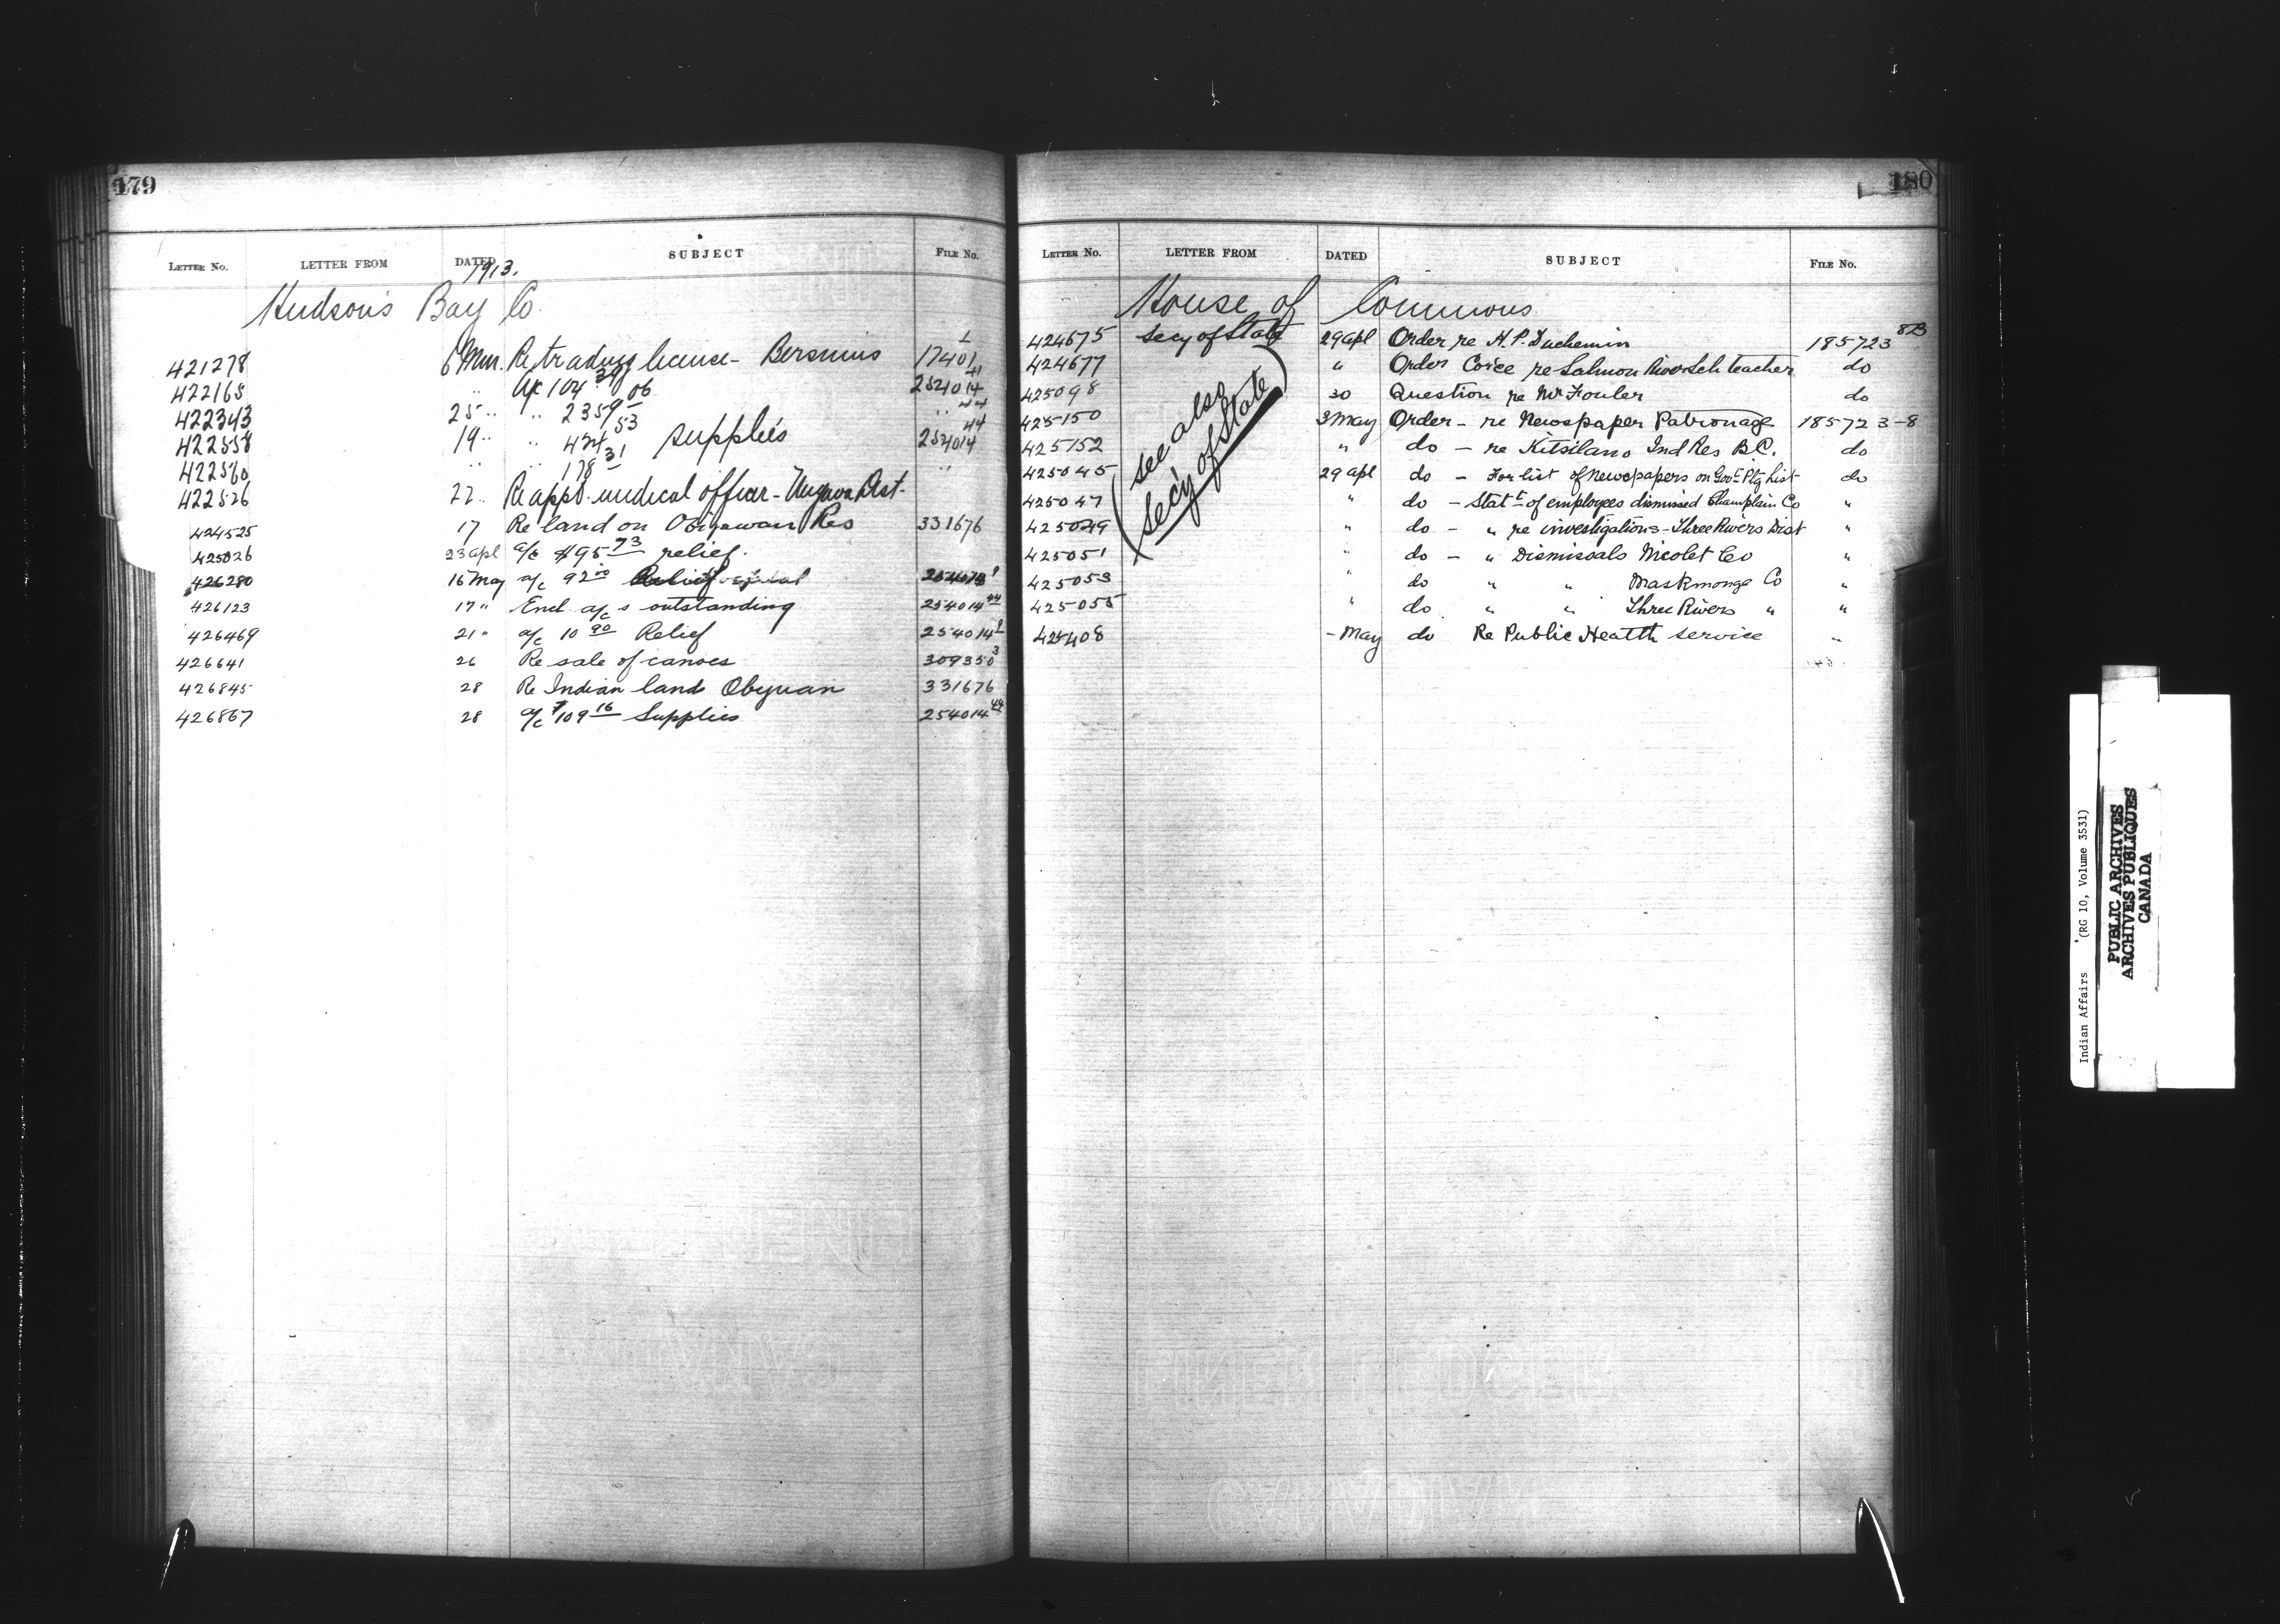 179
LETTER No. LETTER FROM DATED SUBJECT FILE No.
1913.
Hudson's Bay Co
421278 6 Mar. Re trading license - Bersimis 17401 1
422165 " a/c 104 39 254014 41
422343 25 " " 2359 06 " 44
422558 19 " " 424 53 supplies 254014 44
422560 " " 178 31 "
422526 22 " Re appt. medical officer - Ungava Dist.
424525 17 Re land on Obijewan Res 331676
425026 23 apl a/c $95 73 relief.
426280 16 May a/c 92 00
426123 17 " Encl a/cs outstanding 254014 44
426469 21 " a/c 10 90 Relief 254014
426641 26 Re sale of canoes 309350 3
426845 28 Re Indian land Obijuan 331676
426867 28 a/c 109 16 Supplies 254014 44
180
LETTER No. LETTER FROM DATED SUBJECT FILE No.
House of Commons
424675 Secy of State 29 apl Order re H.P. Duchemin 185723 8B
424677 " Order Cor'ce re Salmon River Sch teacher do
425098 30 Question re Mr Fowler do
425150 3 May Order - re Newspaper Patronage 185723-8
425152 " do - re Kitsilano Ind Res B.C. do
425045 29 apl do - For list of newspapers on Gov't Ptg List do
425047 " do - Stat t of employees dismissed Champlain Co "
425049 " do - " re investigations - Three Rivers Dist "
425051 " do - " Dismissals Nicolet Co "
425053 " do " " Maskinonge Co "
425055 " do " " Three Rivers " "
425408 - May do Re Public Health service "
(see also
Secy of State)
Indian Affairs (RG 10, Volume 3531)
PUBLIC ARCHIVES
ARCHIVES PUBLIQUES
CANADA